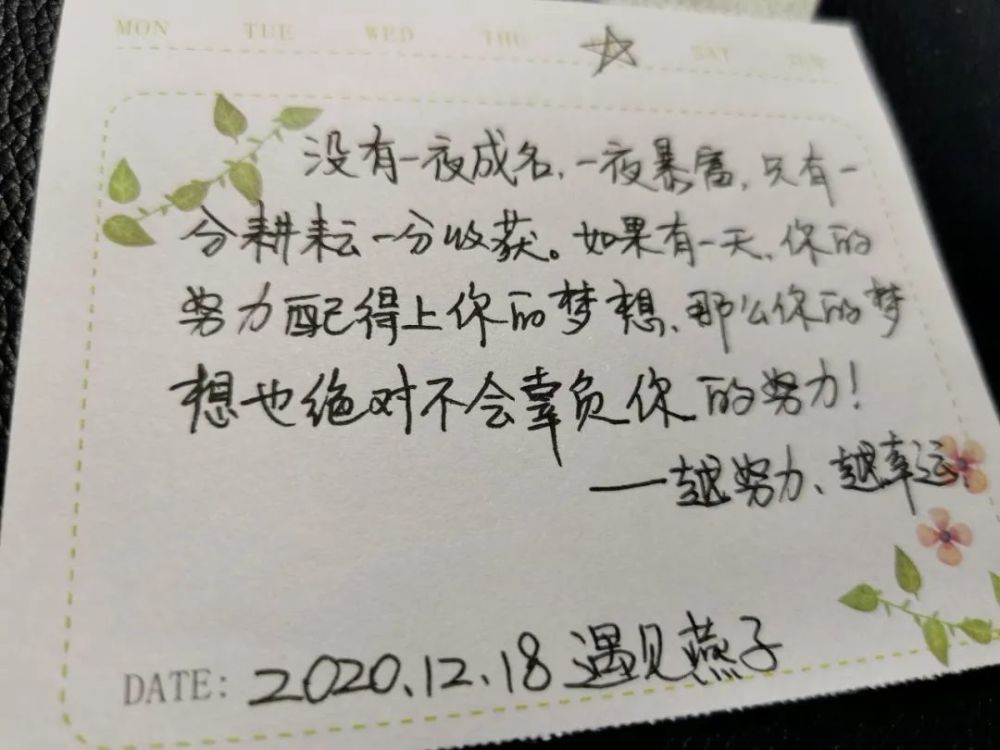 MON TUE WED THU SAT SUN
没有一夜成名，一夜暴富，只有一
分耕耘一分收获。如果有一天，你的
努力配得上你的梦想，那么你的梦
想也绝对不会辜负你的努力！
——越努力、越幸运
DATE: 2020.12.18 遇见燕子